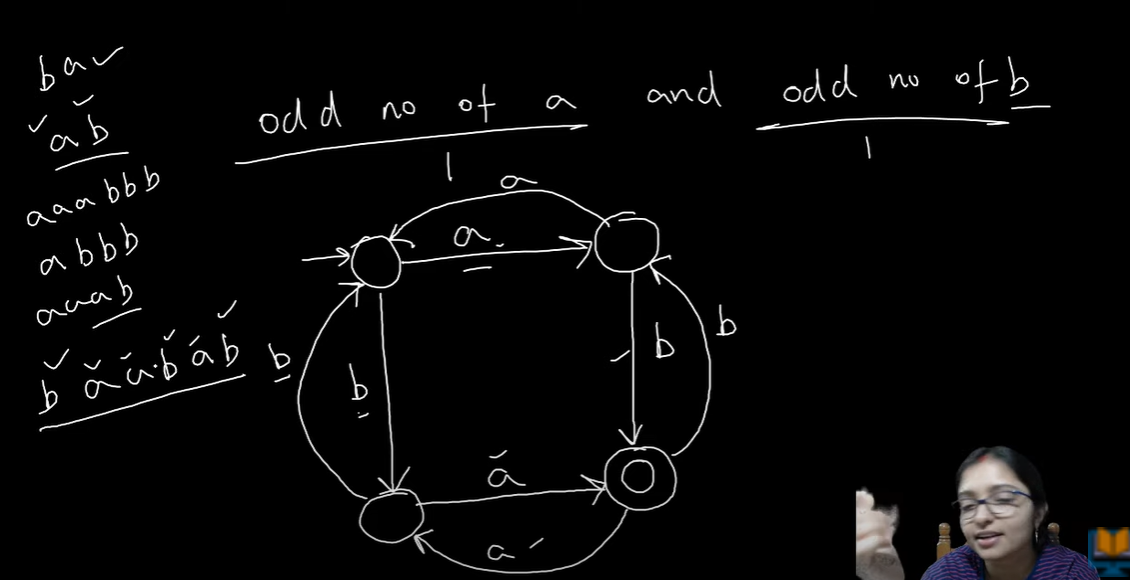 ba
ab
aaabbb
abbb
aaab
baabab
odd no of a and odd no of b
1
1
a
a
b
b
b
b
a
a